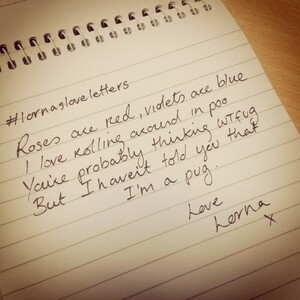 #lornasloveletters
Roses are red, violets are blue
I love rolling around in poo
You're probably thinking WTFug
But I haven't told you that
I'm a pug.
Love
Lorna
x